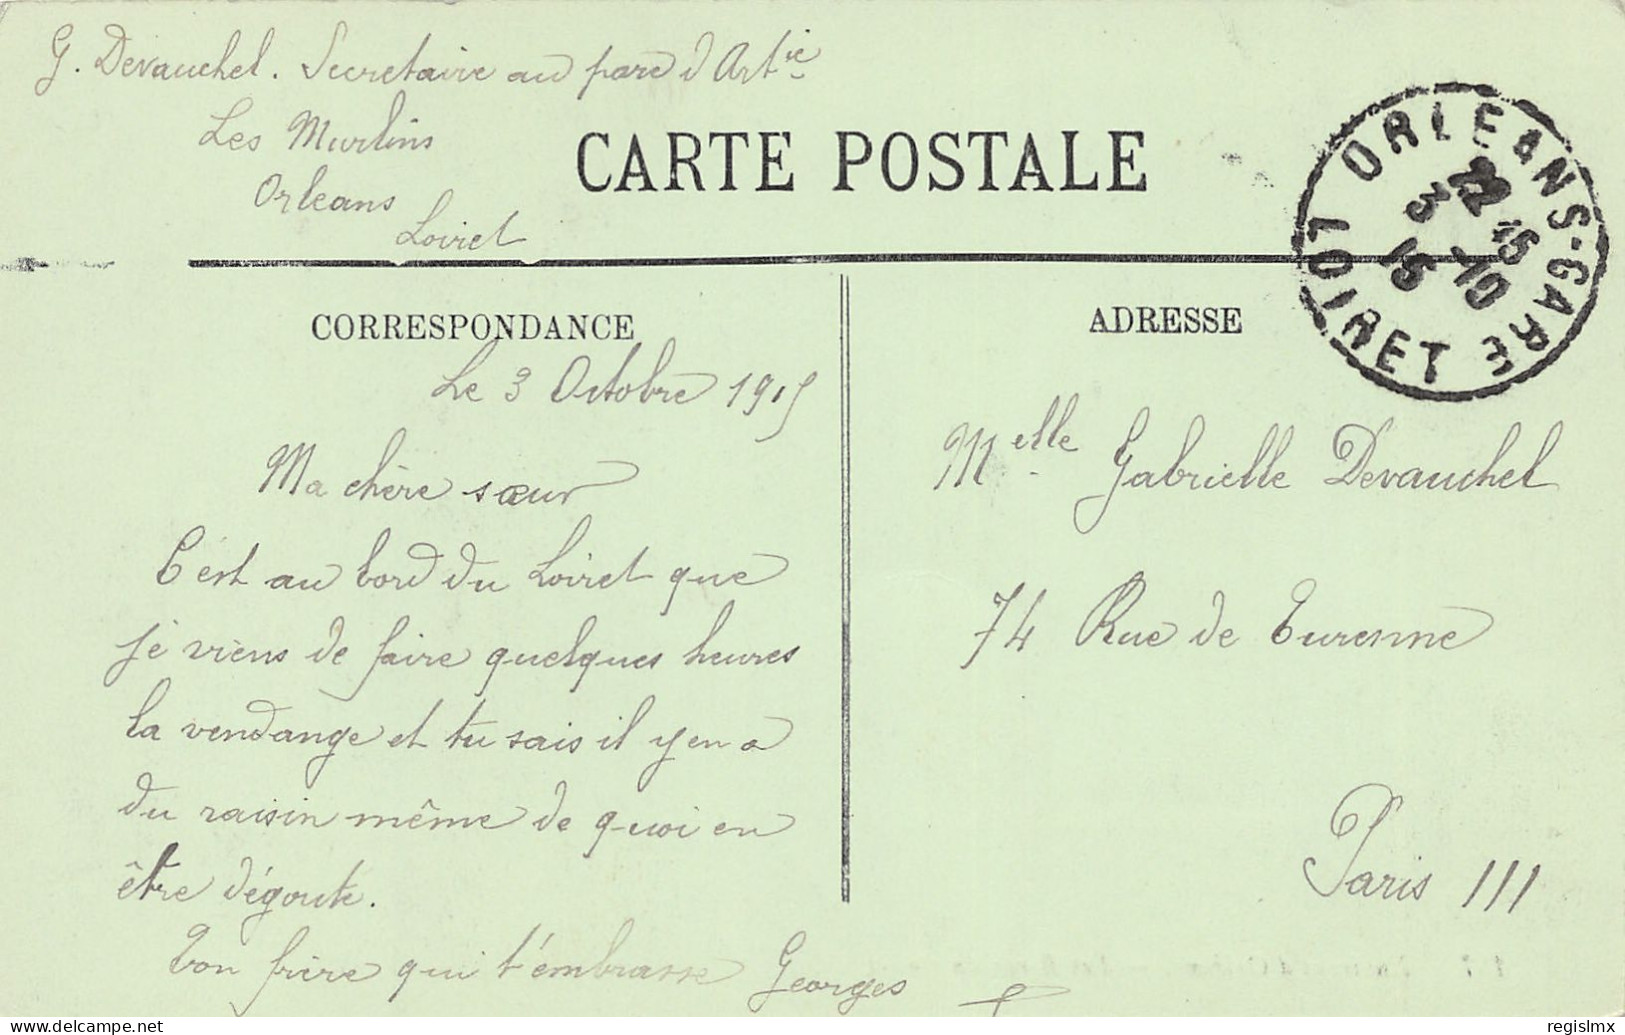 G. Devauchel. Secretaire au parc d'Art^ie
Les Murlins
Orleans
Loiret
CARTE POSTALE
ORLEANS-GARE
22 15
3 -10
15
LOIRET
CORRESPONDANCE
Le 3 Octobre 1915
Ma chère sœur
C'est au bord du Loiret que
je viens de faire quelques heures
la vendange et tu sais il y en a
du raisin même de quoi en
être dégouté.
Ton frère qui t'embrasse Georges
ADRESSE
M^elle Gabrielle Devauchel
74 Rue de Turenne
Paris III
delcampe.net
regislmx